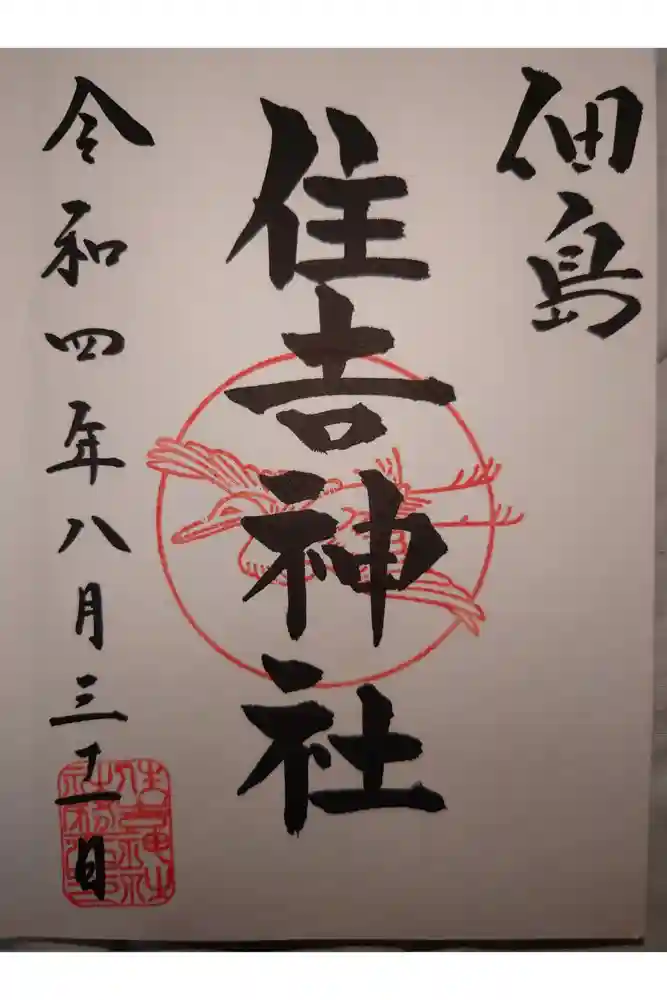 佃島
住吉神社
令和四年八月三十一日